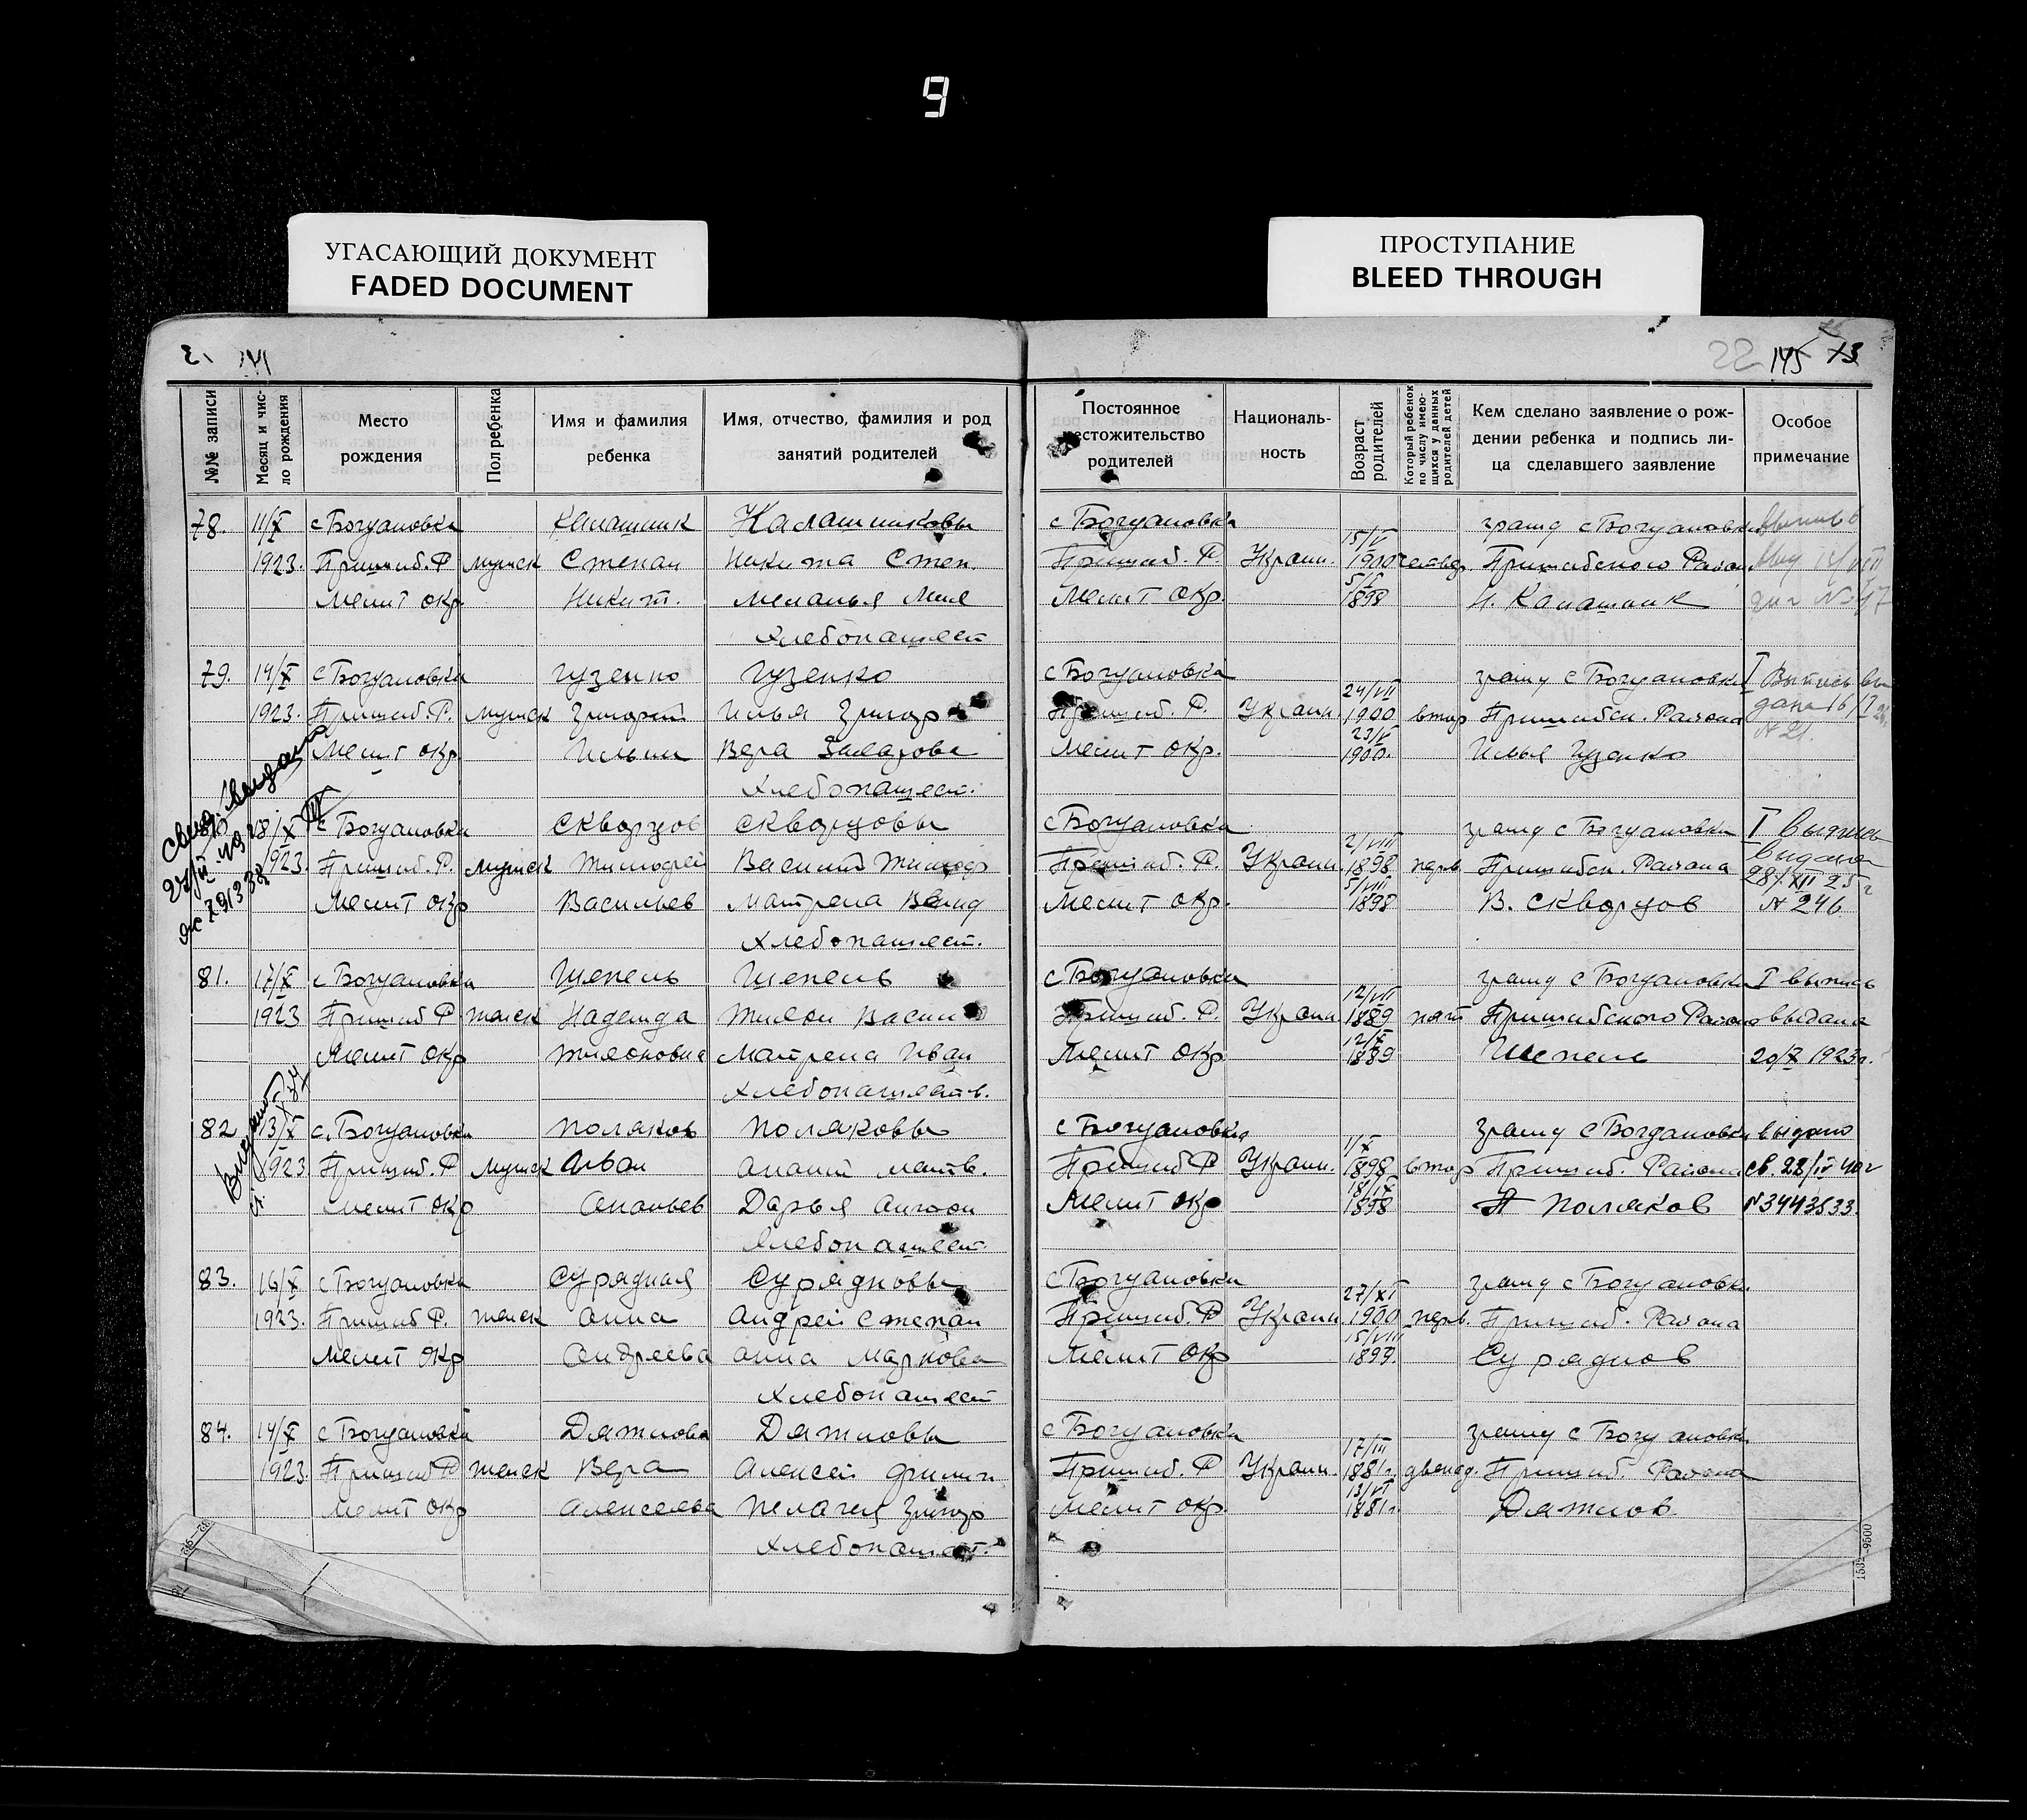 9
УГАСАЮЩИЙ ДОКУМЕНТ
FADED DOCUMENT
ПРОСТУПАНИЕ
BLEED THROUGH
22 145 73
№№ записи
Месяц и число рождения
Место рождения
Пол ребенка
Имя и фамилия ребенка
Имя, отчество, фамилия и род занятий родителей
Постоянное местожительство родителей
Националь-ность
Возраст родителей
Который ребенок по числу имею-щихся у данных родителей детей
Кем сделано заявление о рож-дении ребенка и подпись ли-ца сделавшего заявление
Особое примечание
78. 11/X с Богдановка Калашник Калашниковы с Богдановка 15/V гражд с Богдановка
1923. Пришиб. Р мужск Степан Никита Степ. Пришиб. Р. Украин. 1900 Пришибского Район
Мелит окр. Никит. Меланья Мелит окр. 5/I 1898 Н. Калашник
Хлебопашест
79. 14/X с Богдановка Гузенко Гузенко с Богдановка 24/VII гражд с Богдановка I Выпись вы
1923. Пришиб. Р. мужск Григорий Илья Григор Пришиб. Р. Украин 1900 втор Пришибск. Района дана 16/I
Мелит окр. Ильин Вера Мелит окр. 23/V 1900. Илья Гузенко № 21.
Хлебопашест.
Свид. выдано
27/II 492
ЯС 791338
18/X с Богдановка Скворцов Скворцовы с Богдановка 2/VIII гражд с Богдановка I выпись
1923. Пришиб. Р. мужск Тимофей Василий Тимоф Пришиб. Р. Украин. 1898 перв. Пришибск. Района выдана 28/XII 25 г
Мелит окр Васильев Матрена Мелит окр. 5/VIII 1898 В. Скворцов № 246
Хлебопашест.
81. 17/X с Богдановка Шепель Шепель с Богдановка 12/VII гражд с Богдановка I выпись
1923 Пришиб Р женск Надежда Тихон Васил Пришиб. Р. Украин 1889 пят Пришибского Район выдана
Мелит окр Тихоновна Матрена Иван Мелит окр 12/X 1889 Шепель 20/X 1923 г.
Хлебопашеств.
82 13/X с. Богдановка Поляков Поляковы с Богдановка 1/X гражд с Богдановка выдано
1923. Пришиб. Р мужск Иван Ананий Матв. Пришиб Р Украин. 1898 втор Пришиб. Района св. 22/IV 40 г
Мелит окр Ананьев Дарья Антон Мелит окр 18/IX 1898 А Поляков № 3443533.
Хлебопашест.
83. 16/X с Богдановка Сурядная Сурядновы с Богдановка 27/XI гражд с Богдановка
1923. Пришиб Р. женск Анна Андрей Степан Пришиб. Р Украин. 1900 перв. Пришиб. Района
Мелит окр Андреева Анна Маркова Мелит окр 15/VIII 1899. Суряднов
Хлебопашест
84. 14/X с Богдановка Дятлова Дятловы с Богдановка 17/III гражд с Богдановка
1923. Пришиб Р женск Вера Алексей Филип Пришиб. Р Украин. 1881 г. двенад. Пришиб. Района
Мелит окр Алексеева Пелагея Григор Мелит окр 13/VI 1881 г. Дятлов
Хлебопашест.